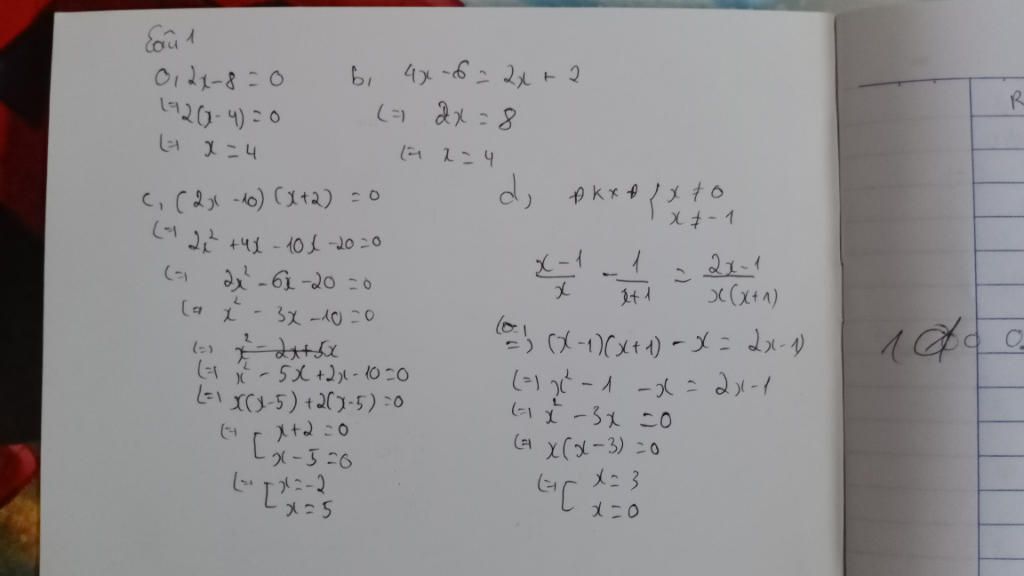 Câu 1
a, 2x - 8 = 0
(=) 2(x - 4) = 0
(=) x = 4
b, 4x - 6 = 2x + 2
(=) 2x = 8
(=) x = 4
c, (2x - 10)(x + 2) = 0
(=) 2x² + 4x - 10x - 20 = 0
(=) 2x² - 6x - 20 = 0
(=) x² - 3x - 10 = 0
(=) x² - 2x + 5x
(=) x² - 5x + 2x - 10 = 0
(=) x(x - 5) + 2(x - 5) = 0
(=) [ x + 2 = 0
x - 5 = 0
(=) [ x = -2
x = 5
d, ĐKXĐ { x ≠ 0
x ≠ -1
(x - 1)/x - 1/(x + 1) = (2x - 1)/(x(x + 1))
=) (x - 1)(x + 1) - x = 2x - 1
(=) x² - 1 - x = 2x - 1
(=) x² - 3x = 0
(=) x(x - 3) = 0
(=) [ x = 3
x = 0
R